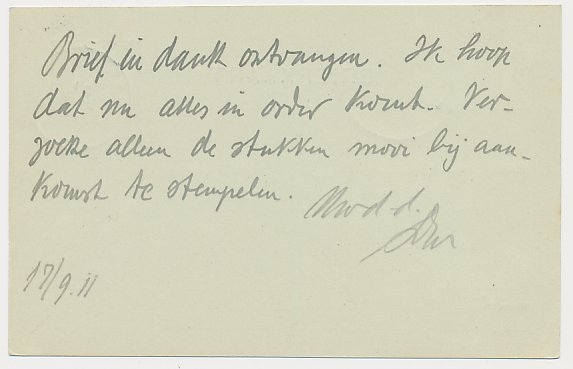 Brief in dank ontvangen. Ik hoop
dat nu alles in order komt. Ver-
zoeke alleen de stukken mooi bij aan-
komst te stempelen.
17/9.11